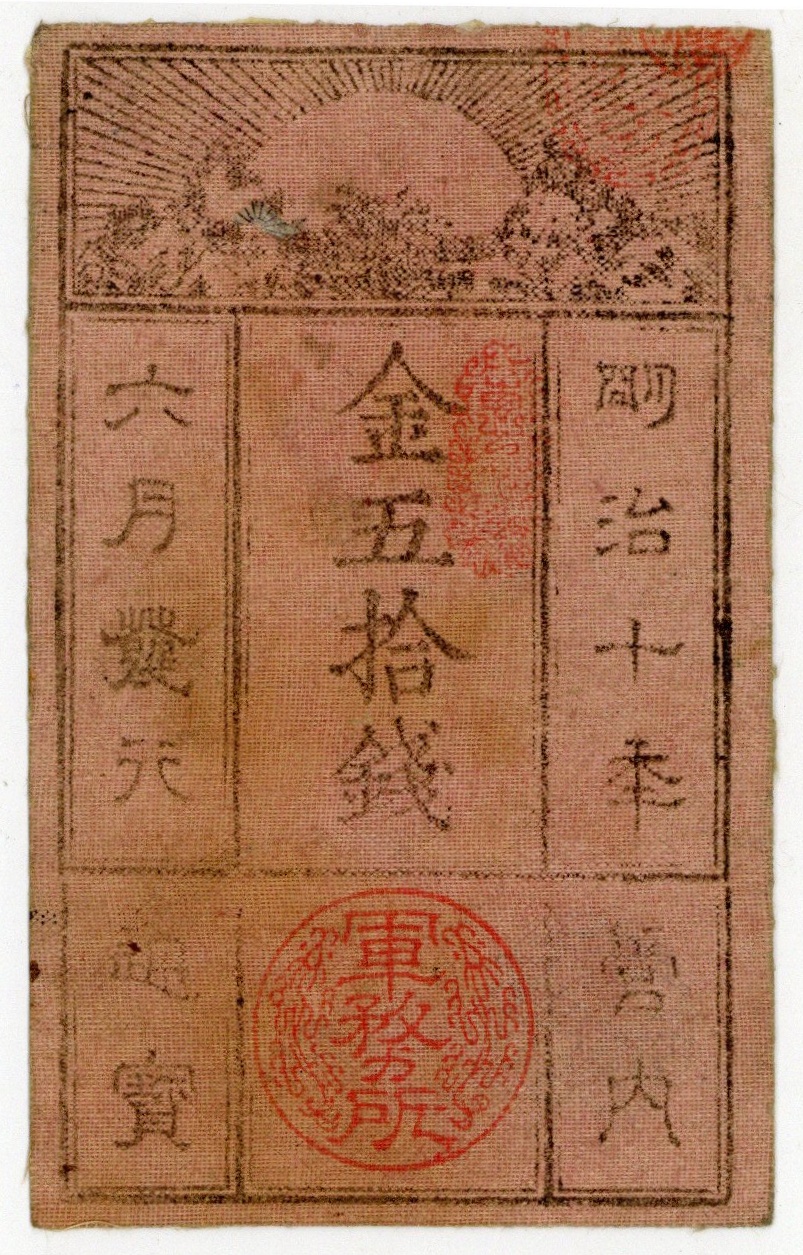 朙治十秊
金五拾錢
六月發行
管内
軍務所
通寶